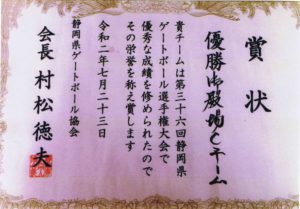 賞状
優勝 御殿場Cチーム
貴チームは第三十六回静岡県
ゲートボール選手権大会で
優秀な成績を修められたので
その栄誉を称え賞します
令和二年七月二十三日
静岡県ゲートボール協会
会長 村松徳夫